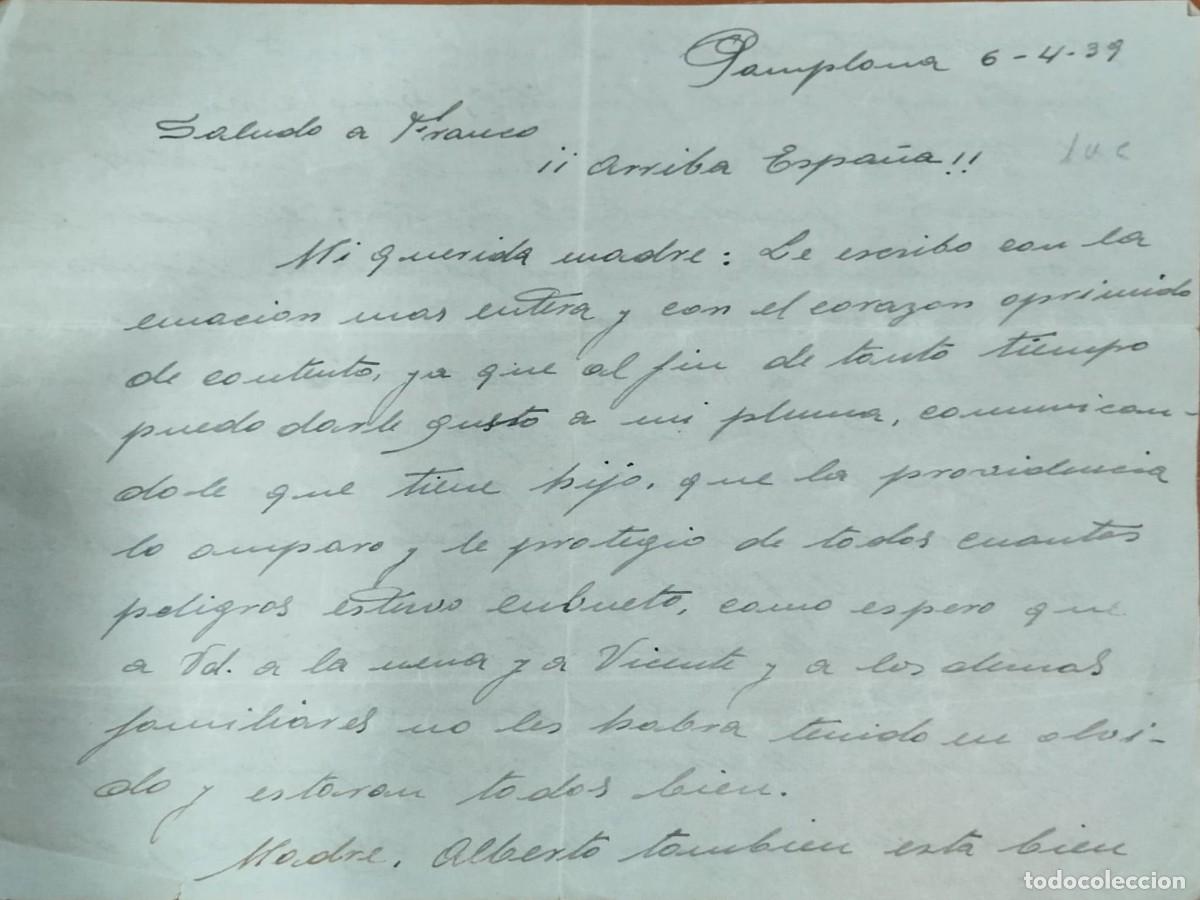 Pamplona 6-4-39
Saludo a Franco
¡¡ Arriba España!!
Mi querida madre: Le escribo con la
emocion mas entera y con el corazon oprimido
de contento, ya que al fin de tanto tiempo
puedo darle gusto a mi pluma, comunican-
dole que tiene hijo, que la providencia
lo amparo y le protegio de todos cuantos
peligros estuvo enbueto, como espero que
a Vd. a la nena y a Vicente y a los demas
familiares no les habra tenido en olvi-
do y estaran todos bien.
Madre, Alberto tambien está bien
todocoleccion